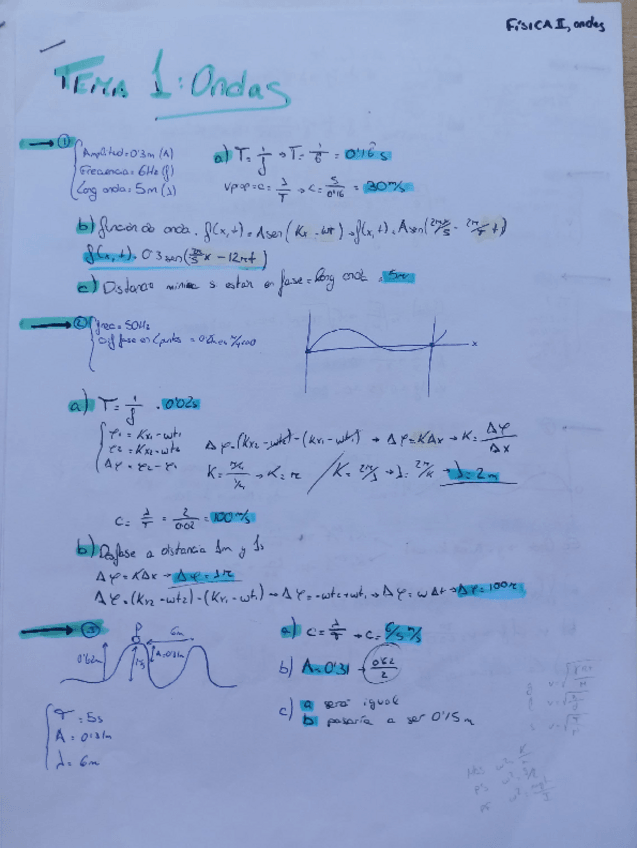 FÍSICA II, ondas
TEMA 1: Ondas
①
Amplitud = 0'3m (A)
Frecuencia = 6Hz (f)
Long onda = 5m (λ)
a) T = 1/f → T = 1/6 = 0'16 s
Vprop = c = λ/T → c = 5/0'16 = 30 m/s
b) función de onda. f(x,t) = A sen(Kx - wt) → f(x,t) = A sen(2πx/5 - 2π/T t)
f(x,t) = 0'3 sen(2π/5 x - 12πt)
c) Distancia mínima si están en fase = long onda = 5m
②
frec = 50Hz
x
a) T = 1/f = 0'02s
φ1 = Kx1 - wt1
φ2 = Kx2 - wt2
Δφ = φ2 - φ1
Δφ = (Kx2 - wt2) - (Kx1 - wt1) → Δφ = KΔx → K = Δφ/Δx
→ K = π / K = 2π/λ → λ = 2π/K → λ = 2m
c = λ/T = 2/0'02 = 100 m/s
b) Desfase a distancia 1m y 1s
Δφ = KΔx → Δφ = 1π
Δφ = (Kx2 - wt2) - (Kx1 - wt1) → Δφ = -wt2 + wt1 → Δφ = wΔt → Δφ = 100π
③
P
6m
0'62m
A = 0'31m
T = 5s
A = 0'31m
λ = 6m
a) c = λ/T → c = 6/5 m/s
b) A = 0'31 → 0'62/2
c) a será igual
b pasaría a ser 0'15 m